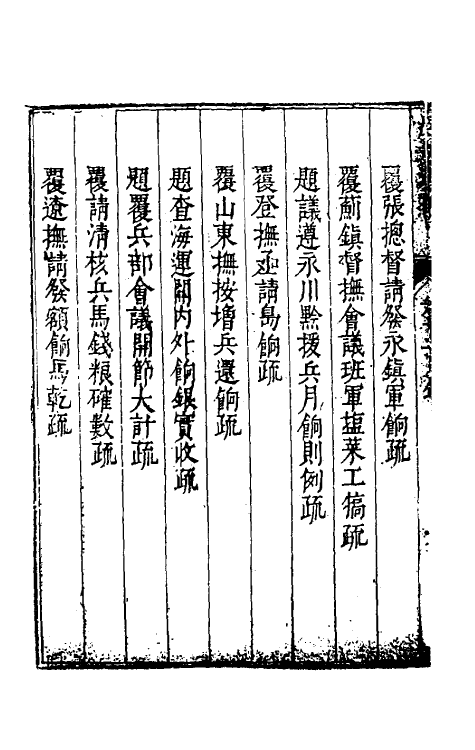 覆張摠督請發永鎮軍餉疏
覆薊鎮督撫會議班軍塩菜工犒疏
題議遵永川黔援兵月餉則例疏
覆登撫亟請島餉疏
覆山東撫按增兵還餉疏
題查海運關內外餉銀實收疏
題覆兵部會議開節大計疏
覆請清核兵馬錢粮確數疏
覆遼撫請發額餉馬乾疏